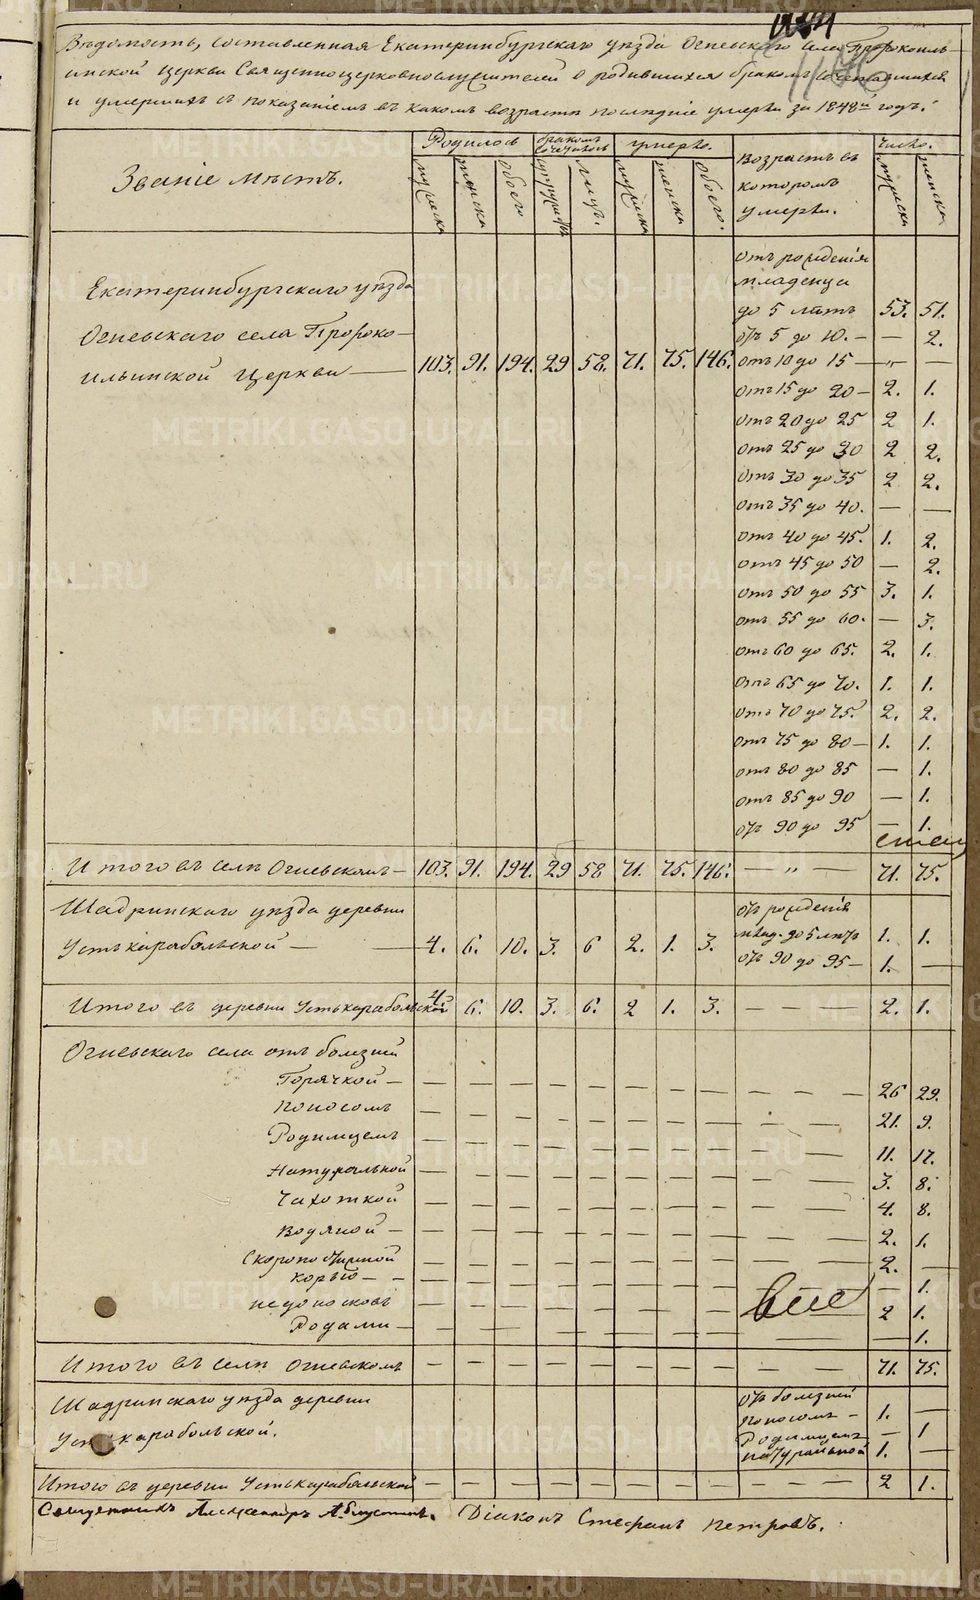 Вѣдомость, составленная Екатеринбургскаго уѣзда Огневскаго села Пророкоиль-
инской церкви Священноцерковнослужителей о родившихся бракомъ сочетавшихся
и умершихъ съ показаніемъ въ какомъ возрастѣ послѣдніе умерли за 1848й годъ.
Званіе мѣстъ. Родилось бракомъ сочеталось умерло. Возрастъ въ которомъ умерли. число.
мужеска женска обоего супружествъ лицъ. мужеска женска обоего. мужеска женска
Екатеринбургскаго уѣзда
Огневскаго села Пророко-
ильинской церкви — 103. 91. 194. 29 58. 71. 75. 146.
отъ рожденія
младенца
до 5 лѣтъ 53. 51.
отъ 5 до 10. — — 2.
отъ 10 до 15 — „ —
отъ 15 до 20 — 2. 1.
отъ 20 до 25 2 1.
отъ 25 до 30 2 2.
отъ 30 до 35 2 2.
отъ 35 до 40. — —
отъ 40 до 45. 1. 2.
отъ 45 до 50 — 2.
отъ 50 до 55 3. 1.
отъ 55 до 60. — 3.
отъ 60 до 65. 2. 1.
отъ 65 до 70. 1. 1.
отъ 70 до 75. 2. 2.
отъ 75 до 80 — 1. 1.
отъ 80 до 85 — 1.
отъ 85 до 90 — 1.
отъ 90 до 95 — 1.
Итого въ селѣ Огневскомъ — 103. 91. 194. 29 58 71. 75. 146. — „ — 71. 75.
Шадринскаго уѣзда деревни
Устькарабольской — 4. 6. 10. 3. 6 2. 1. 3.
отъ рожденія
млад. до 5 лѣтъ 1. 1.
отъ 90 до 95 — 1. —
Итого въ деревни Устькарабольской 4. 6. 10. 3. 6. 2 1. 3. — — 2. 1.
Огневскаго села отъ болезней
Горячкой — 26 29.
Поносомъ 21. 9.
Родимцемъ 11. 17.
Натуральной 3. 8.
Чахоткой 4. 8.
Водяной — 2. 1.
Скоропостижной 2. —
Корью — — 1.
недоносковъ 2 1.
Родами — — 1.
Итого въ селѣ Огневскомъ 71. 75.
Шадринскаго уѣзда деревни
Устькарабольской.
отъ болезней
поносомъ — 1. —
Родимцемъ — 1
натуральной 1. —
Итого въ деревни Устькарабольской — 2 1.
Священникъ Александръ
Діаконъ Стефанъ Петровъ.
METRIKI.GASO-URAL.RU